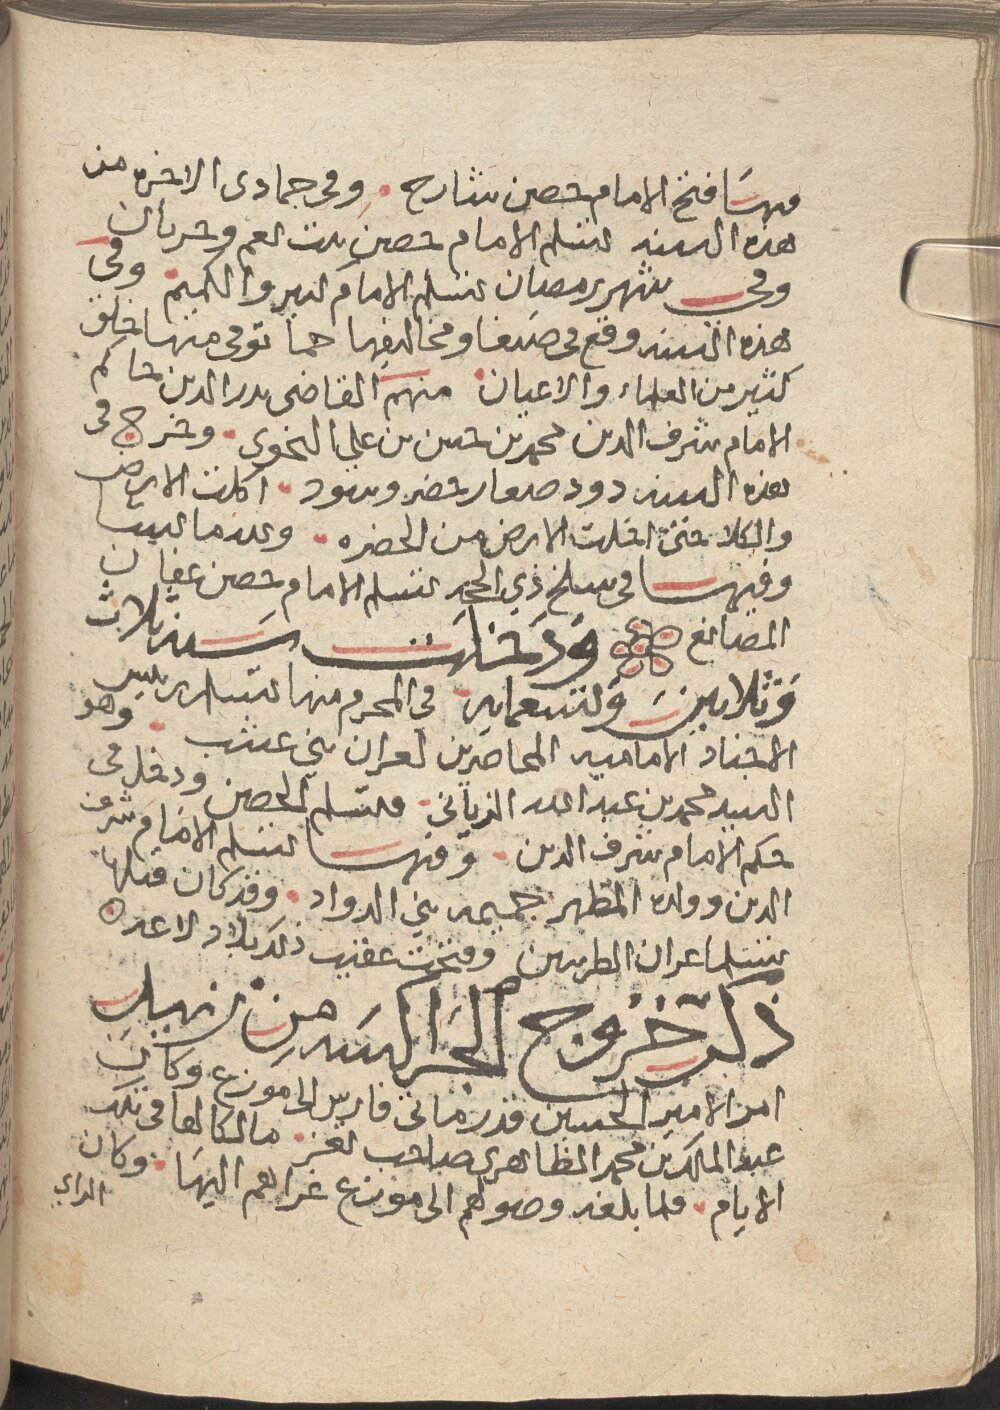 وفيها فتح الامام حصن شارح وفي جمادى الاخره من
هذه السنه تسلم الامام حصن بيت نعم وحربان
وفي شهر رمضان تسلم الامام وفي
هذه السنه وقع في صنعا ومخاليفها حما توفي منها خلق
كثير من العلماء والاعيان منهم القاضى بدر الدين حاكم
الامام شرف الدين محمد بن حسن بن علي النحوى وخرج في
هذه السنه دود صغار خضر وسود اكلت الارض
والكلا حتى اخلت الارض من الخضره وعدمانيتها
وفيها في سلخ ذي الحجه تسلم الامام حصن عفان
المصانع ودخلت سنة ثلاث
وثلاثين وتسعمايه في المحرم منها
الاجناد الاماميه المحاصرين لعران بني عشب وهو
السيد محمد بن عبد الله الزياني فتسلم الحصن ودخل في
حكم الامام شرف الدين وفيها تسلم الامام شرف
الدين وولده المطهر جميمه بني الدواد وقد كان قبلها
تسلما عران وفتحت عقيب ذلك بلاد لاعه
ذكر خروج الجراكسه من زبيد
امر الامير الحسين قدر مانى فارس الى موزع وكان
عبد الملك بن محمد الظاهري صاحب تعز مالكا لها في تلك
الايام فلما بلغه وصولهم الى موزع غزاهم اليها وكان
الداي